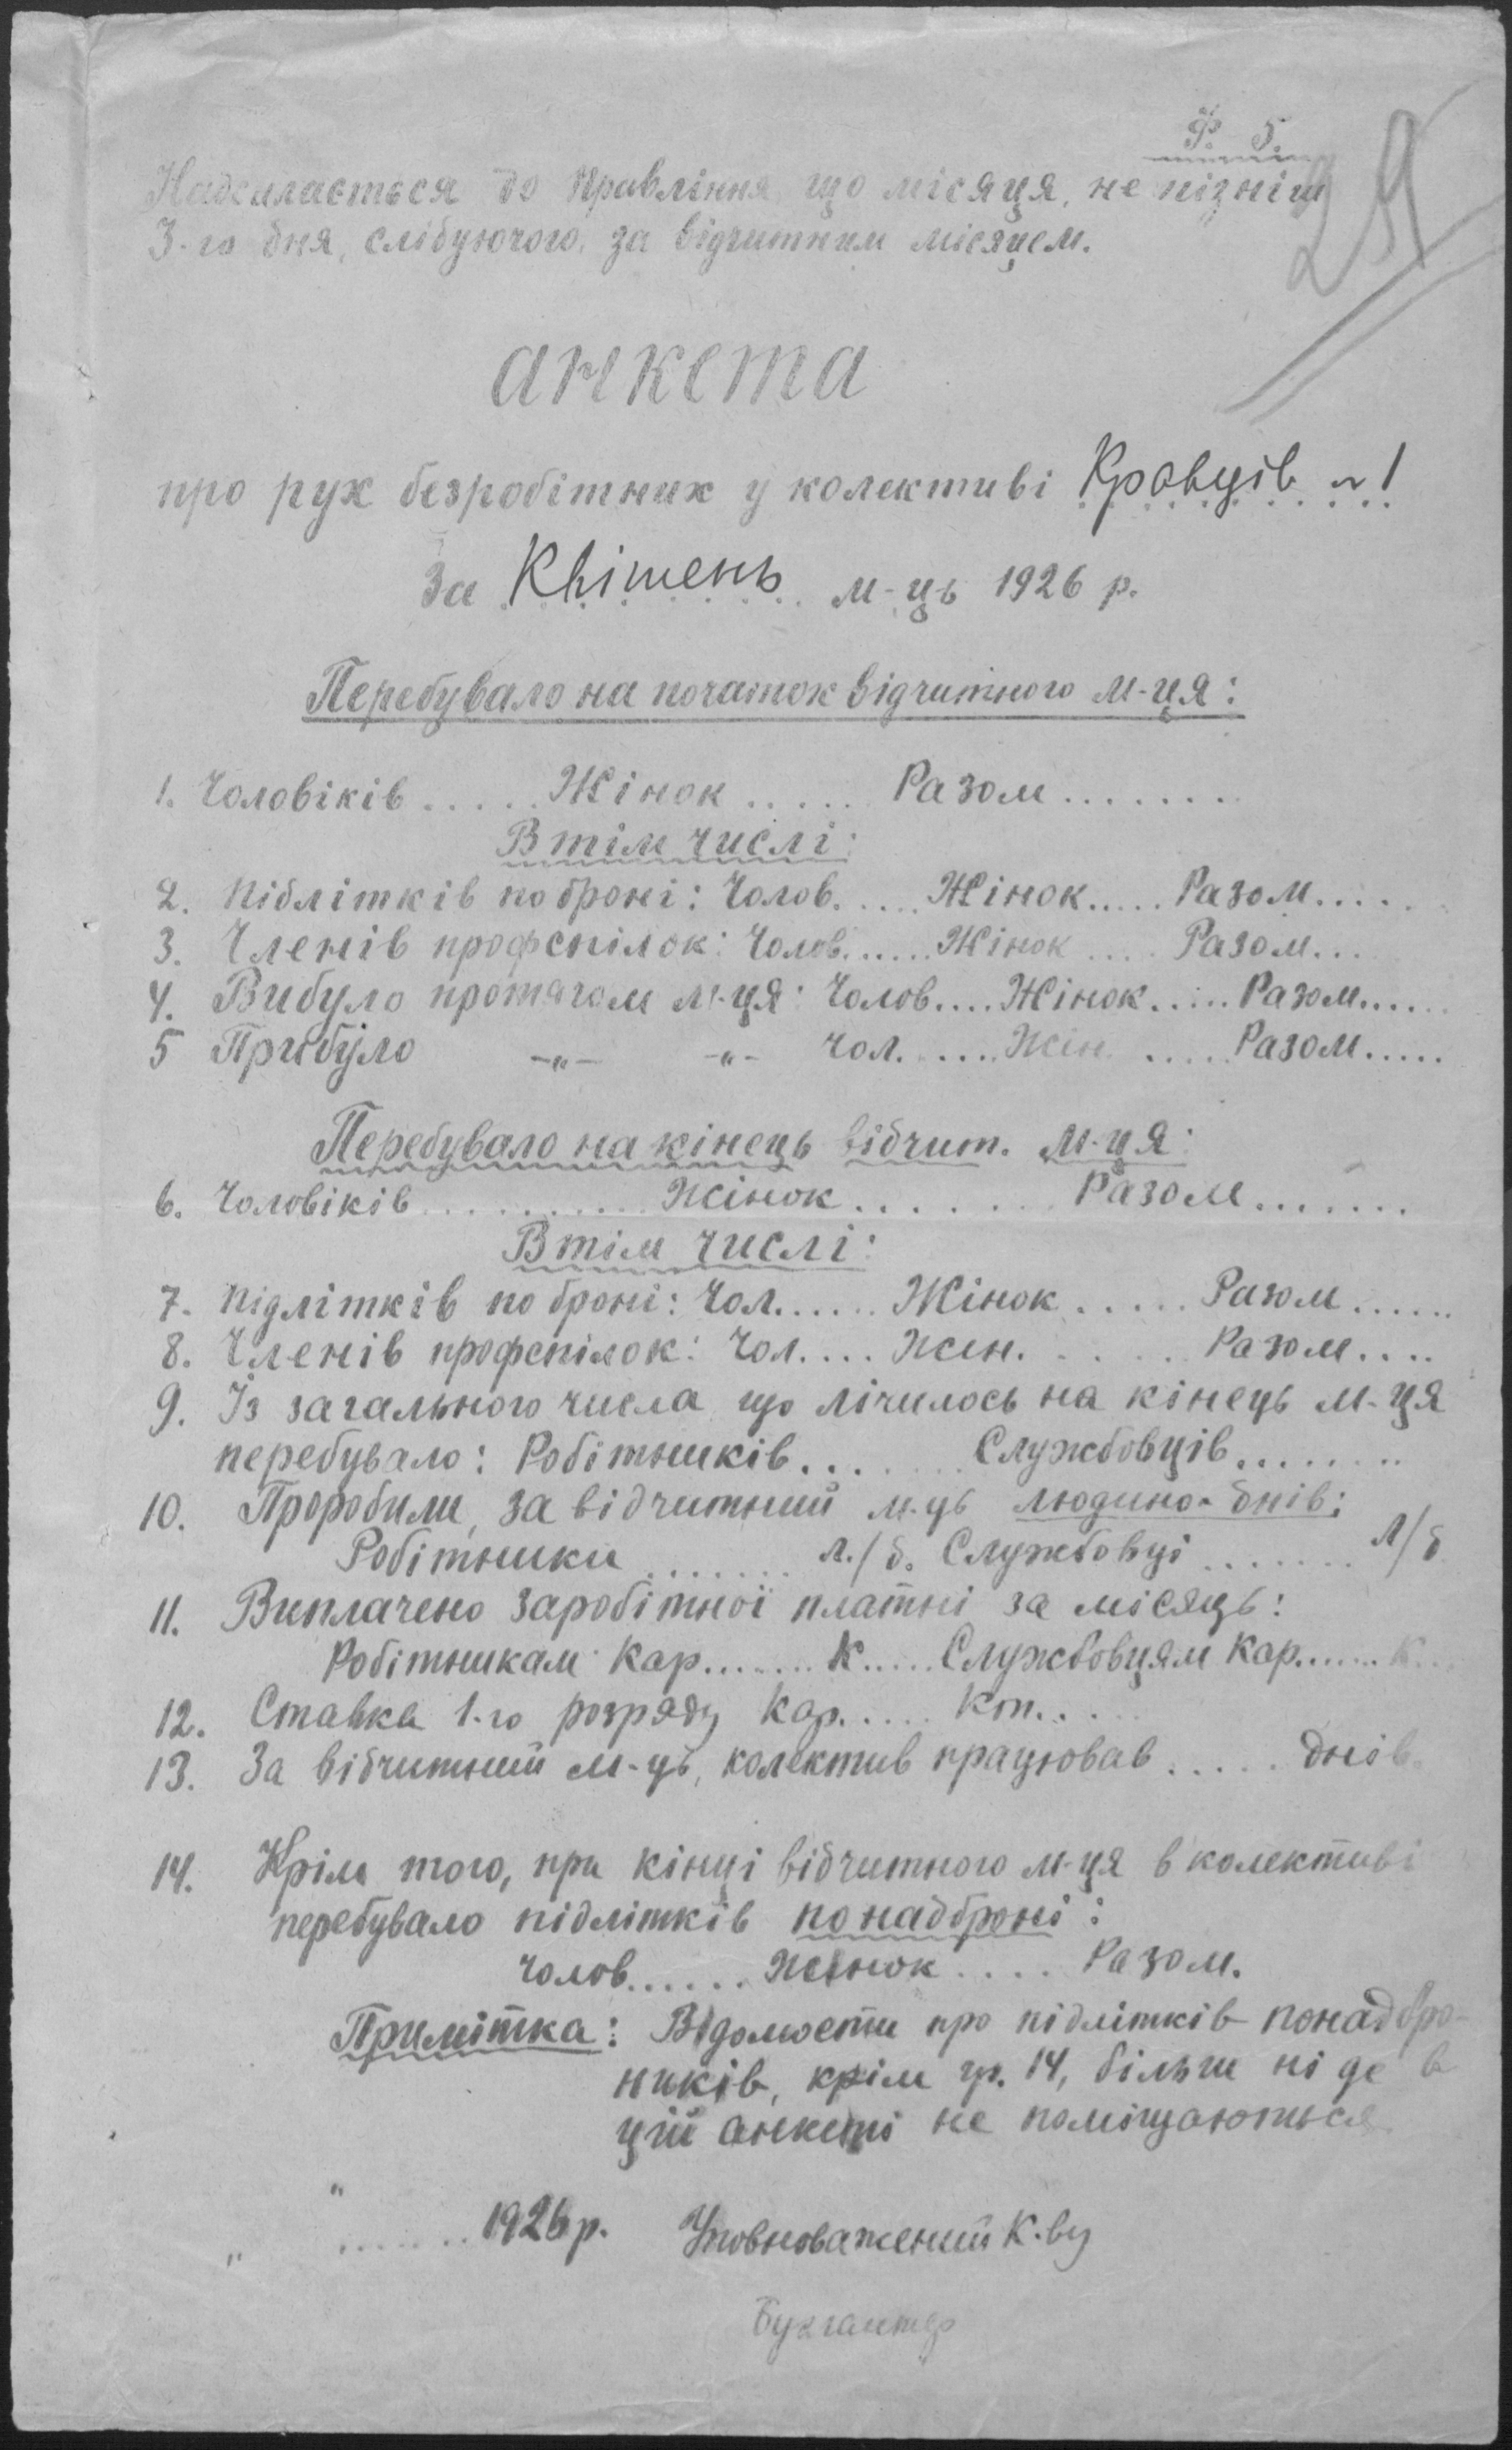 Ф. 5.
29
Надсилається до Правління що місяця, не пізніш
3-го дня, слідуючого за відчитним місяцем.
анкета
про рух безробітних у колективі Кравців № 1
За Квітень м-ць 1926 р.
Перебувало на початок відчитного м-ця:
1. Чоловіків ..... Жінок ..... Разом ........
В тім числі:
2. Підлітків по броні: Чолов. .... Жінок ..... Разом .....
3. Членів профспілок: Чолов. ..... Жінок .... Разом ...
4. Вибуло протягом м-ця: Чолов. ... Жінок ..... Разом ......
5 Прибуло —„— —„— Чол. ..... Жін. ..... Разом .....
Перебувало на кінець відчит. м-ця:
6. Чоловіків .......... Жінок ........ Разом .......
В тім числі:
7. Підлітків по броні: Чол. ..... Жінок ..... Разом ......
8. Членів профспілок: Чол. ... Жін. ..... Разом ....
9. Із загального числа що лічилось на кінець м-ця
перебувало: Робітників ....... Службовців ........
10. Проробили, за відчитний м-ць людино-днів:
Робітники ....... л./д. Службовці ....... л/д
11. Виплачено заробітної платні за місяць:
Робітникам Кар. ...... К. .... Службовцям Кар. ..... К...
12. Ставка 1-го розряду Кар. .... Кп. ....
13. За відчитний м-ць, колектив працював ..... днів.
14. Крім того, при кінці відчитного м-ця в колективі
перебувало підлітків понадброні:
Чолов. ..... Жінок .... Разом.
Примітка: Відомости про підлітків понадбро-
ників, крім гр. 14, більш ні де в
цій анкеті не поміщаються
„ " ....... 1926 р. Уповноважений К-ву
Бухгалтер